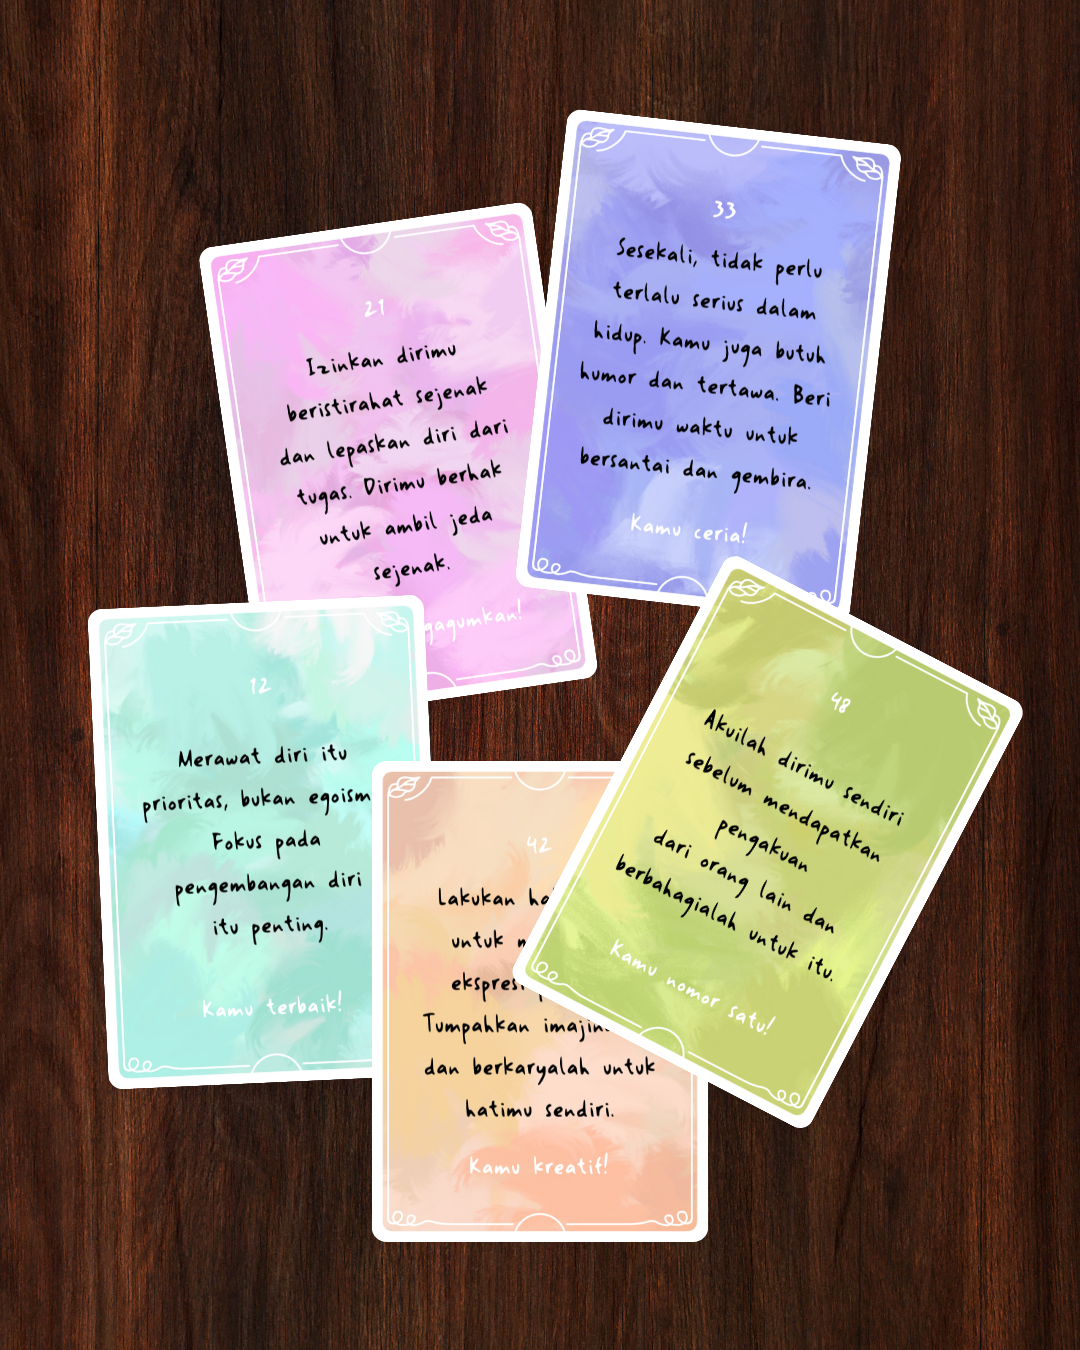 33
Sesekali, tidak perlu
terlalu serius dalam
hidup. Kamu juga butuh
humor dan tertawa. Beri
dirimu waktu untuk
bersantai dan gembira.
Kamu ceria!
21
Izinkan dirimu
beristirahat sejenak
dan lepaskan diri dari
tugas. Dirimu berhak
untuk ambil jeda
sejenak.
12
Merawat diri itu
prioritas, bukan egoism
Fokus pada
pengembangan diri
itu penting.
Kamu terbaik!
48
Akuilah dirimu sendiri
sebelum mendapatkan
pengakuan
dari orang lain dan
berbahagialah untuk itu.
Kamu nomor satu!
42
Lakukan
untuk
Tumpahkan
dan berkaryalah untuk
hatimu sendiri.
Kamu kreatif!